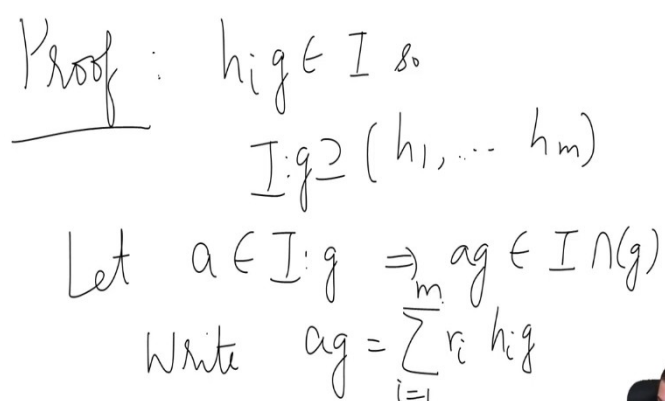 Proof : hᵢg ∈ I so
I:g ⊇ (h₁, ... hₘ)
Let a ∈ I:g ⇒ ag ∈ I ∩ (g)
Write ag = ∑ᵢ₌₁ᵐ rᵢ hᵢg